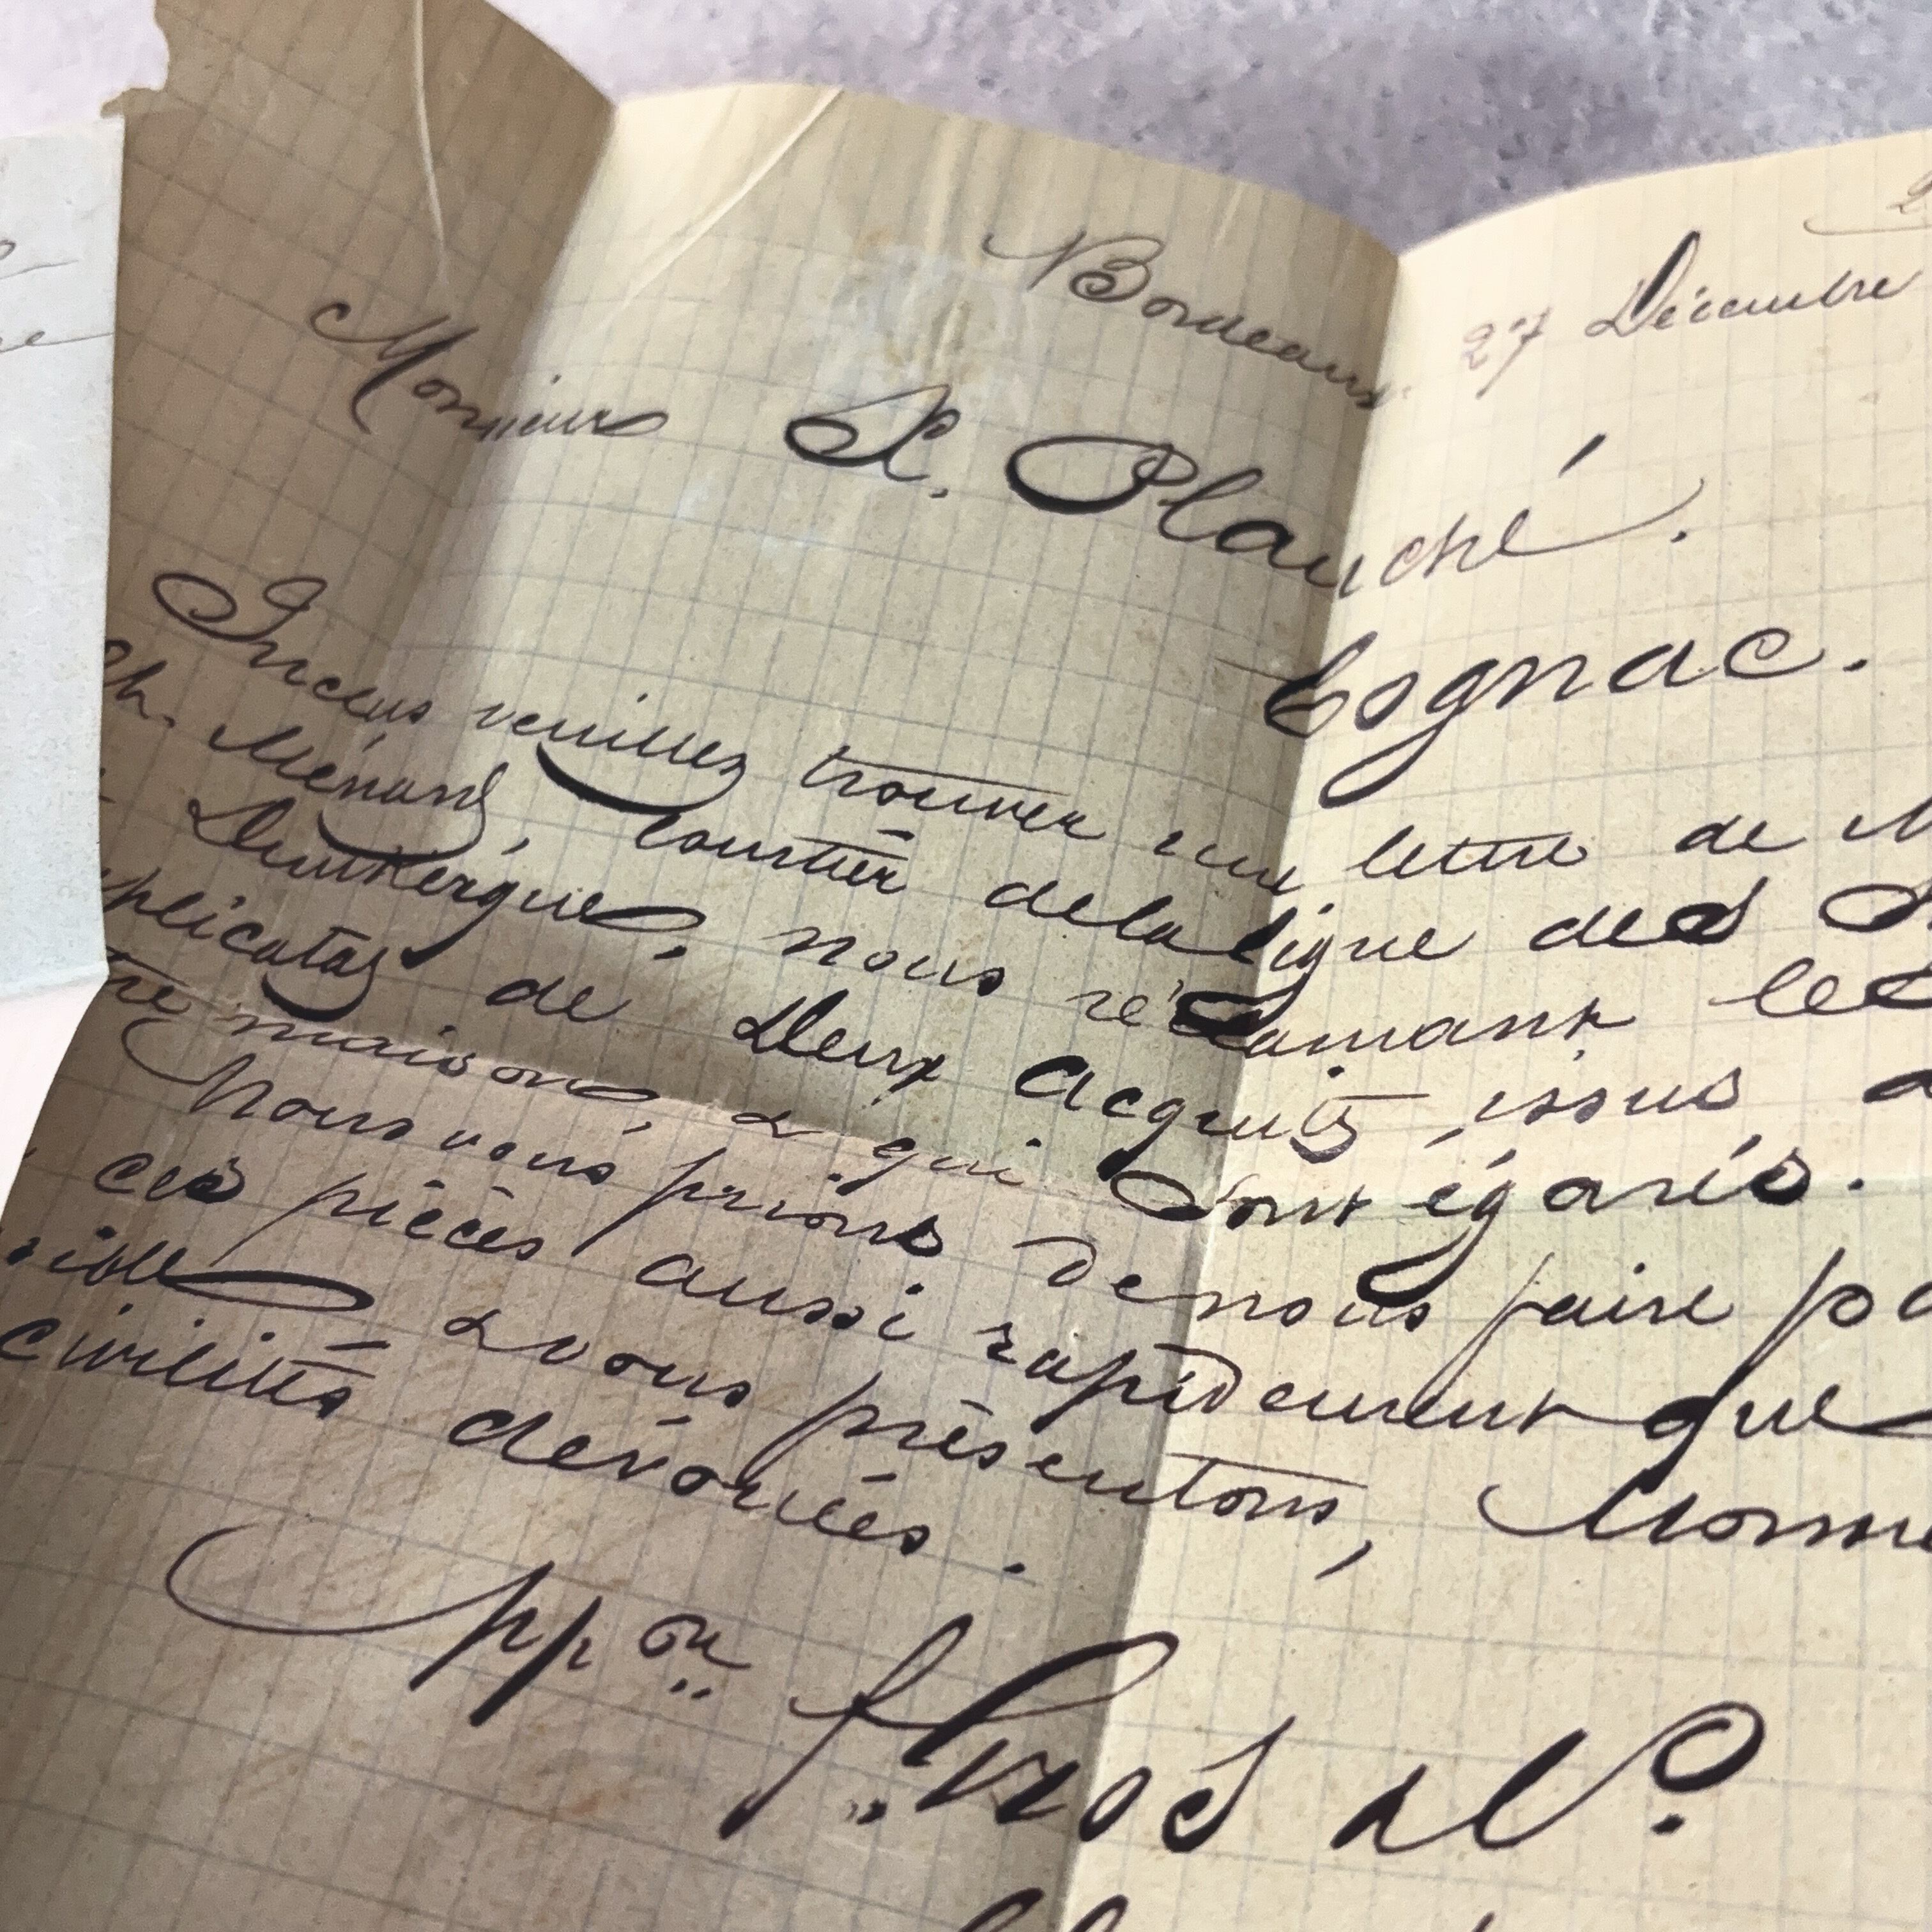 Bordeaux 27 Décembre
Monsieur X. Planché.
Cognac.
Inclus veuillez trouver une lettre de
Ch. Ménard, courtier de la ligne des
Dunkerque, nous réclamant les
plicatas de deux acquits, issus
tre maison, & qui sont égarés.
Nous vous prions de nous faire
ces pièces aussi rapidement que
sible & vous présentons,
civilités dévouées.
ppon